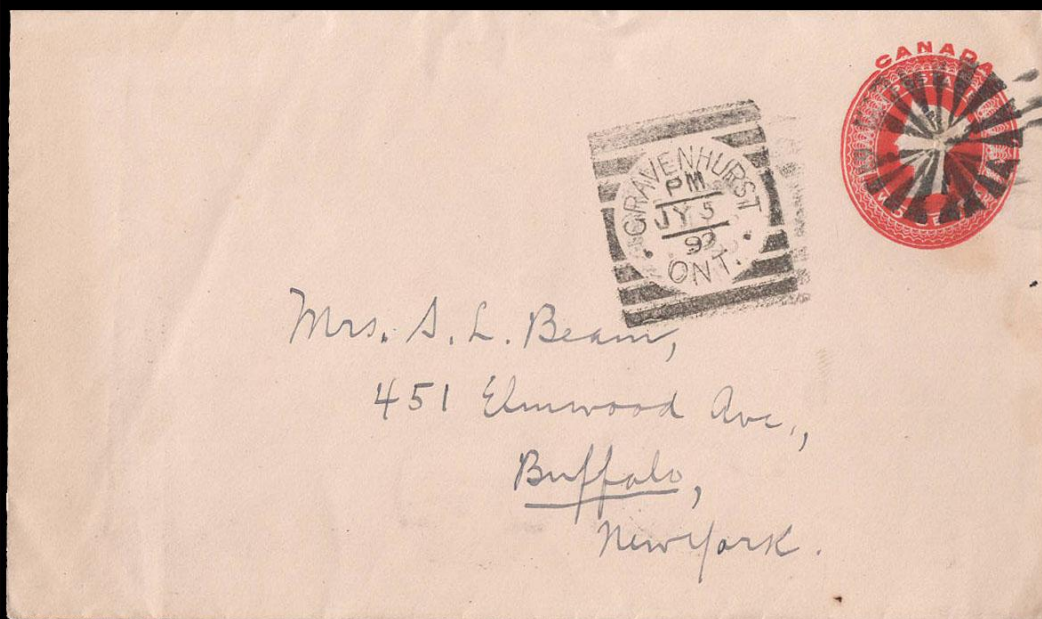 CANADA
GRAVENHURST
PM
JY 5
99
ONT.
Mrs. S. L. Beam,
451 Elmwood Ave.,
Buffalo,
New York.